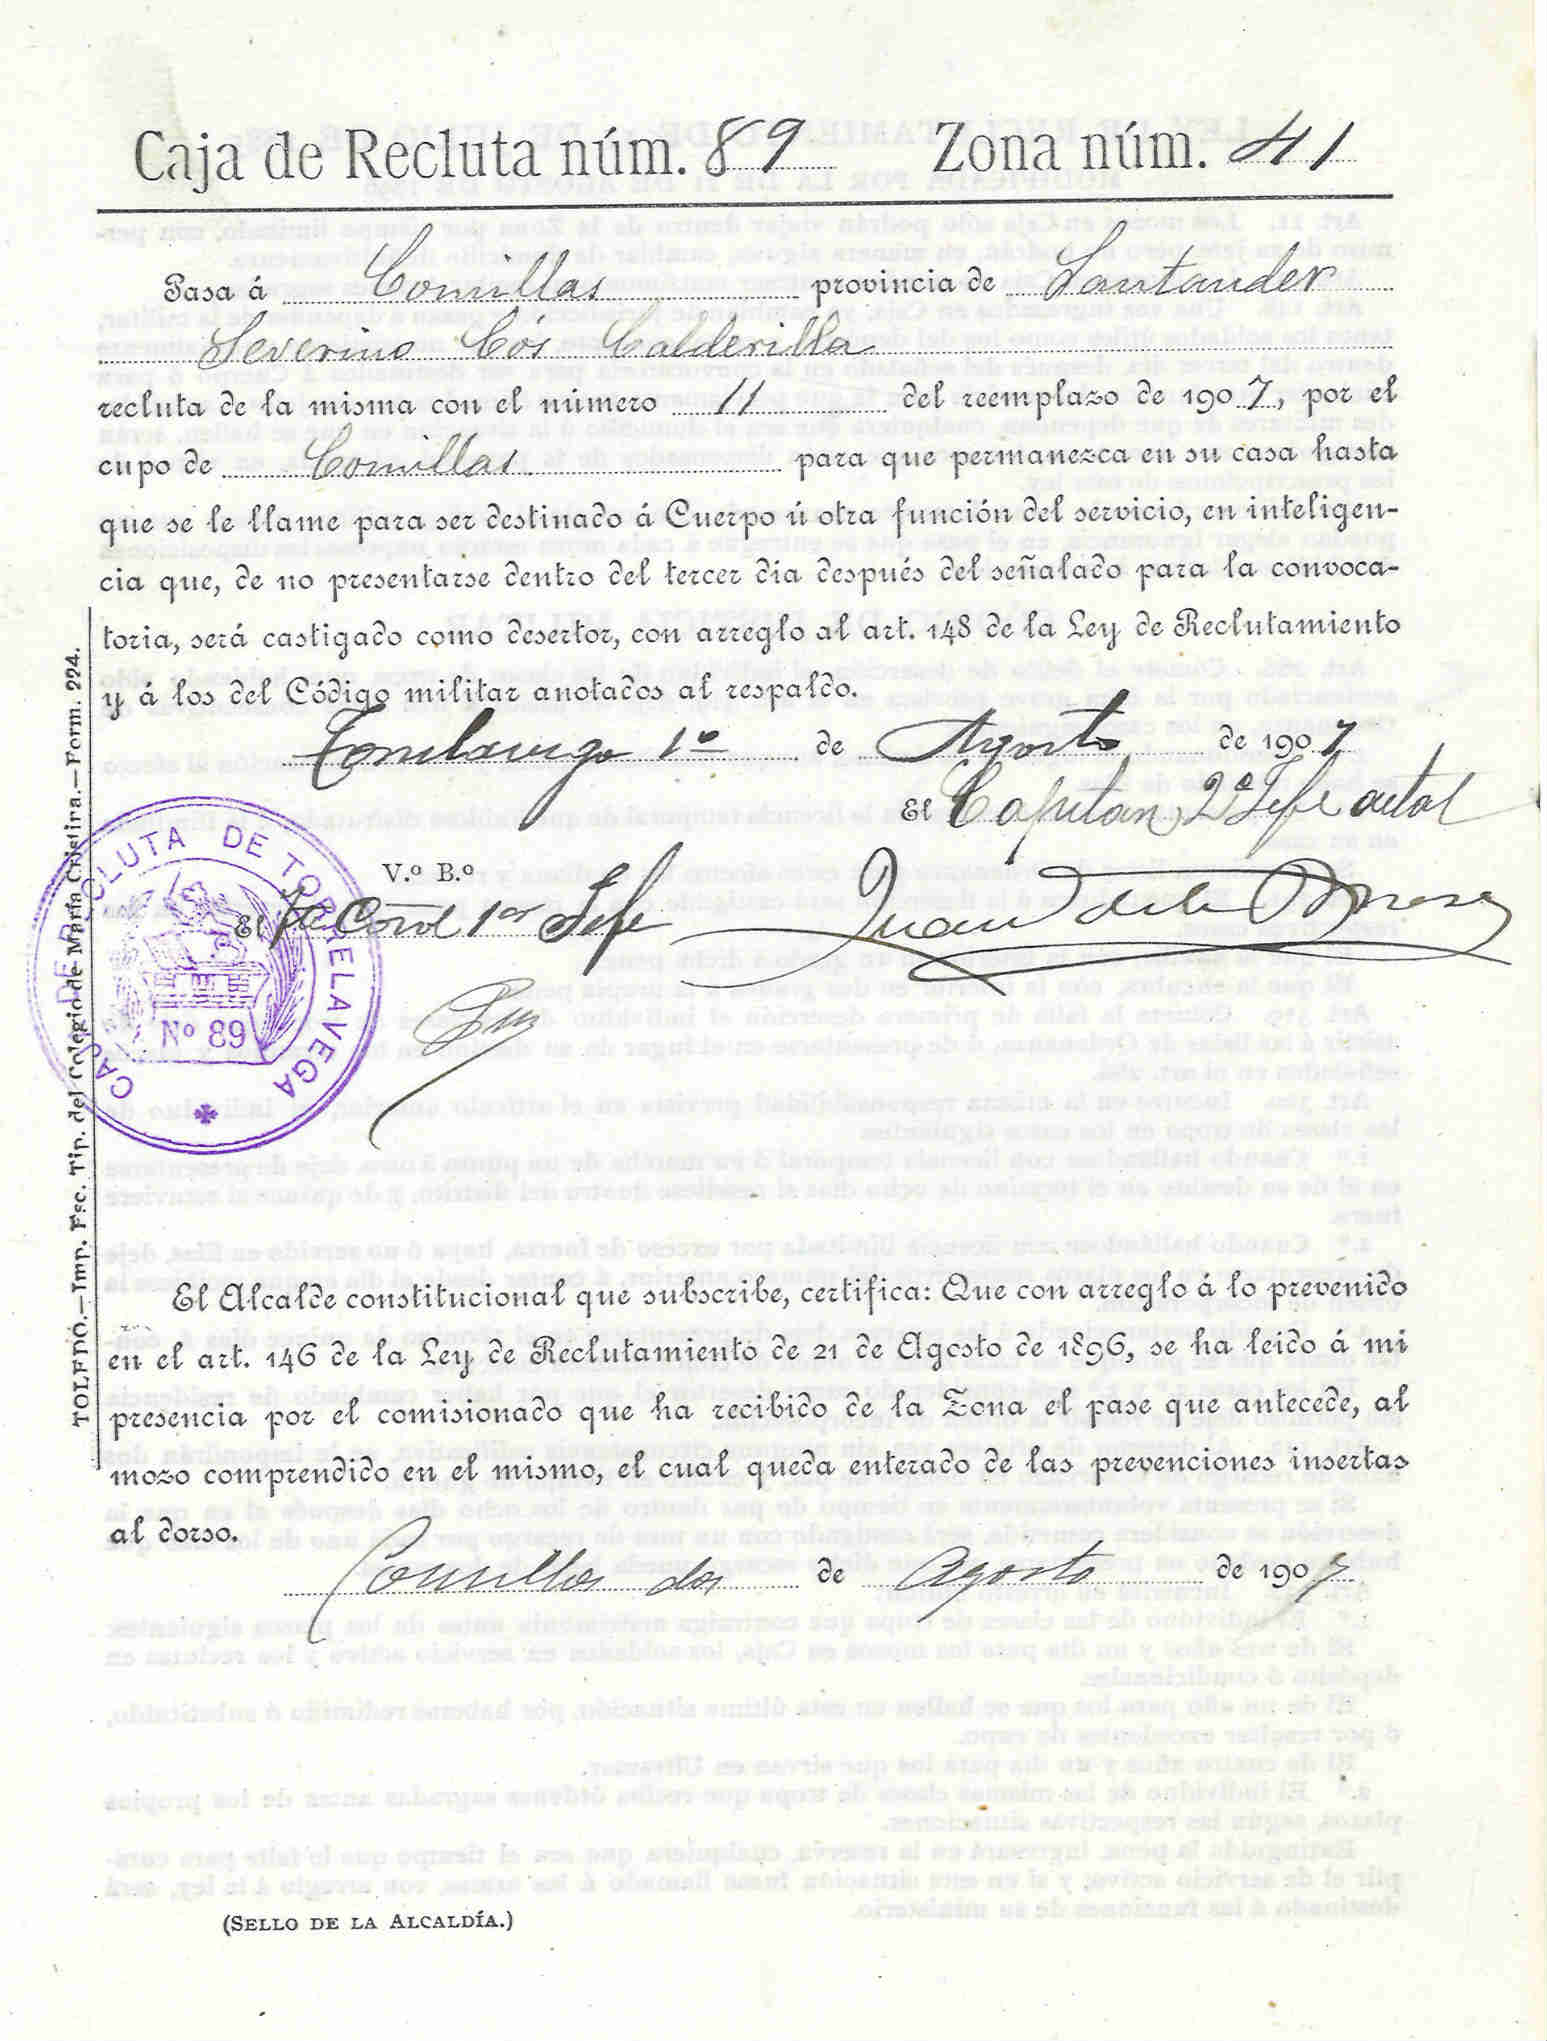 Caja de Recluta núm. 89 Zona núm. 41
Pasa á Comillas provincia de Santander
Severino Cós Calderilla
recluta de la misma con el número 11 del reemplazo de 1907, por el
cupo de Comillas para que permanezca en su casa hasta
que se le llame para ser destinado á Cuerpo ú otra función del servicio, en inteligen-
cia que, de no presentarse dentro del tercer dia después del señalado para la convoca-
toria, será castigado como desertor, con arreglo al art. 148 de la Ley de Reclutamiento
y á los del Código militar anotados al respaldo.
Torrelavega 1º de Agosto de 1907
El Capitan, 2º Jefe actal
V.º B.º
El Te Corol 1er Jefe
Juan de la
CAJA DE RECLUTA DE TORRELAVEGA
Nº 89
TOLEDO.—Imp. Esc. Tip. del Colegio de María Cristina.—Form. 224.
El Alcalde constitucional que subscribe, certifica: Que con arreglo á lo prevenido
en el art. 146 de la Ley de Reclutamiento de 21 de Agosto de 1896, se ha leido á mi
presencia por el comisionado que ha recibido de la Zona el pase que antecede, al
mozo comprendido en el mismo, el cual queda enterado de las prevenciones insertas
al dorso.
Comillas dos de Agosto de 1907
(SELLO DE LA ALCALDÍA.)